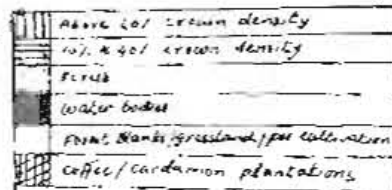 Above 40% crown density
10% & 40% crown density
Scrub
Water bodies
Forest blanks/grassland/pvt cultivation
Coffee/cardamon plantations